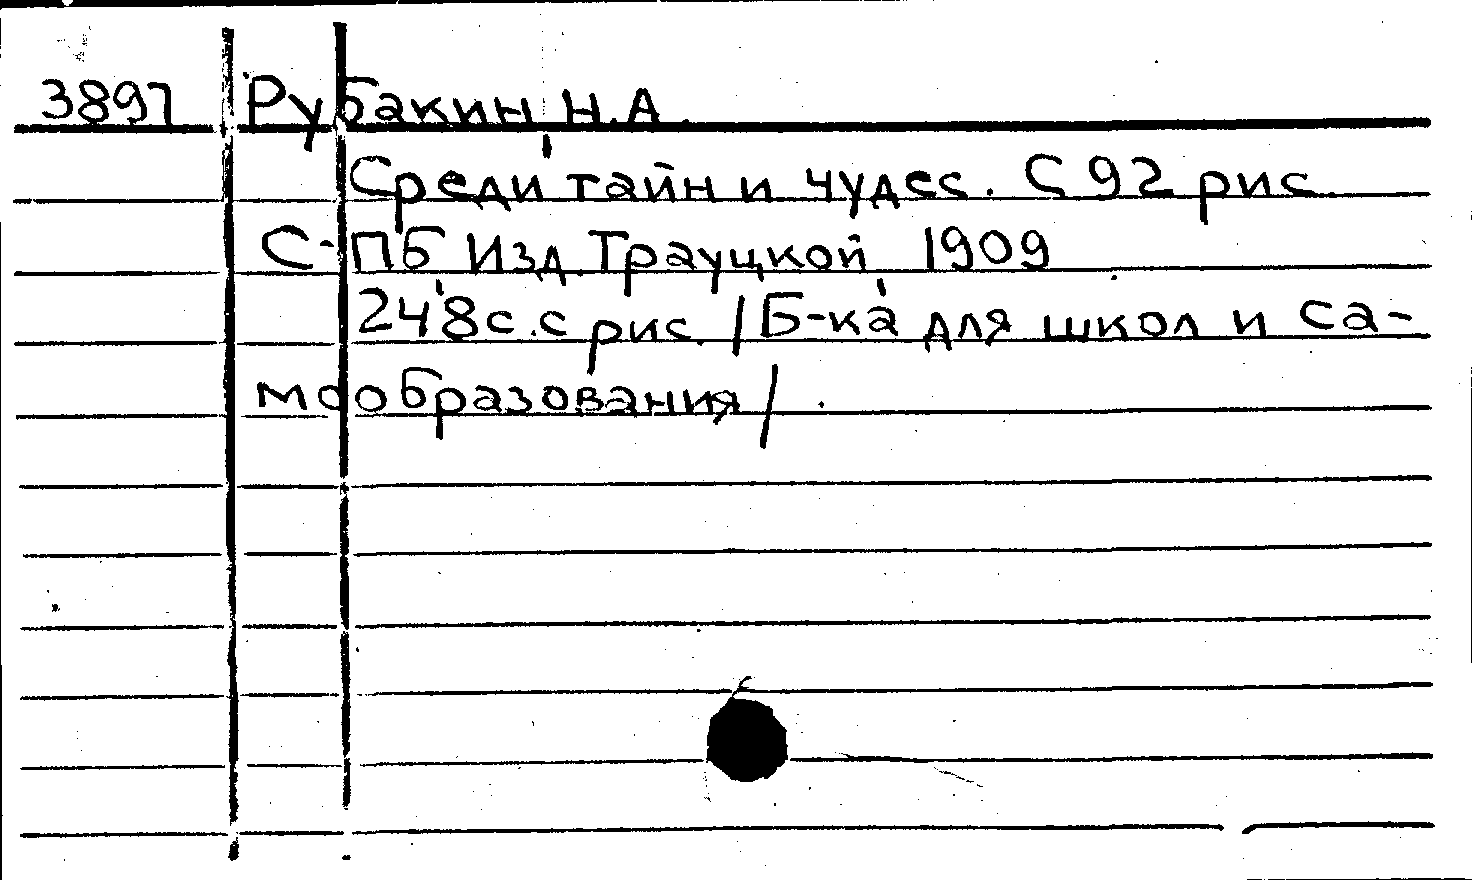 3897 Рубакин, Н.А.
Среди тайн и чудес. С 92 рис.
С-ПБ, Изд. Трауцкой, 1909
248с. с рис. /Б-ка для школ и са-
мообразования/.